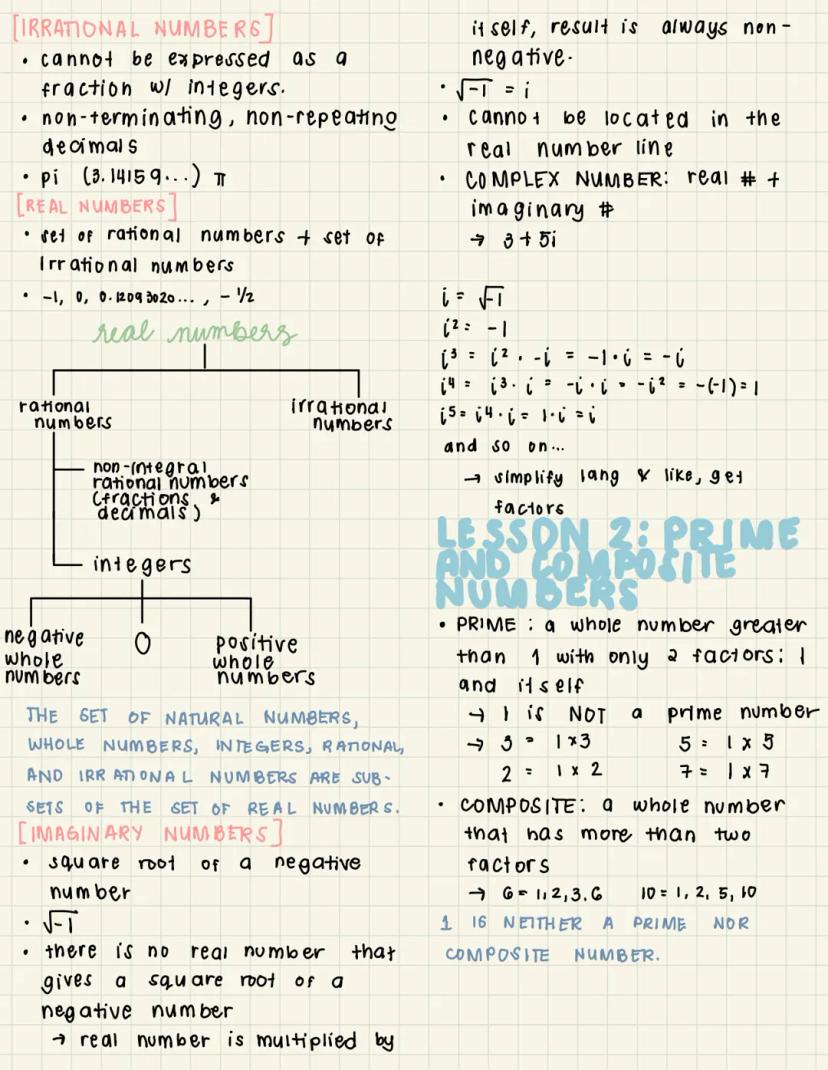 [IRRATIONAL NUMBERS]
• cannot be expressed as a
fraction w/ integers.
• non-terminating, non-repeating
decimals
• pi (3.14159...) π
[REAL NUMBERS]
• set of rational numbers + set of
irrational numbers
• -1, 0, 0.12093020... , - 1/2
real numbers
rational
numbers
irrational
numbers
non-integral
rational numbers
(fractions &
decimals)
integers
negative
whole
numbers
0
positive
whole
numbers
THE SET OF NATURAL NUMBERS,
WHOLE NUMBERS, INTEGERS, RATIONAL,
AND IRRATIONAL NUMBERS ARE SUB-
SETS OF THE SET OF REAL NUMBERS.
[IMAGINARY NUMBERS]
• square root of a negative
number
• √-1
• there is no real number that
gives a square root of a
negative number
→ real number is multiplied by
itself, result is always non-
negative.
• √-1 = i
• cannot be located in the
real number line
• COMPLEX NUMBER: real # +
imaginary #
→ 3 + 5i
i = √-1
i² = -1
i³ = i² · -i = -1 · i = -i
i⁴ = i³ · i = -i · i = -i² = -(-1) = 1
i⁵ = i⁴ · i = 1 · i = i
and so on...
→ simplify lang & like, get
factors
LESSON 2: PRIME
AND COMPOSITE
NUMBERS
• PRIME : a whole number greater
than 1 with only 2 factors: 1
and itself
→ 1 is NOT a prime number
→ 3 = 1 x 3 5 = 1 x 5
2 = 1 x 2 7 = 1 x 7
• COMPOSITE: a whole number
that has more than two
factors
→ 6 = 1, 2, 3, 6 10 = 1, 2, 5, 10
1 IS NEITHER A PRIME NOR
COMPOSITE NUMBER.